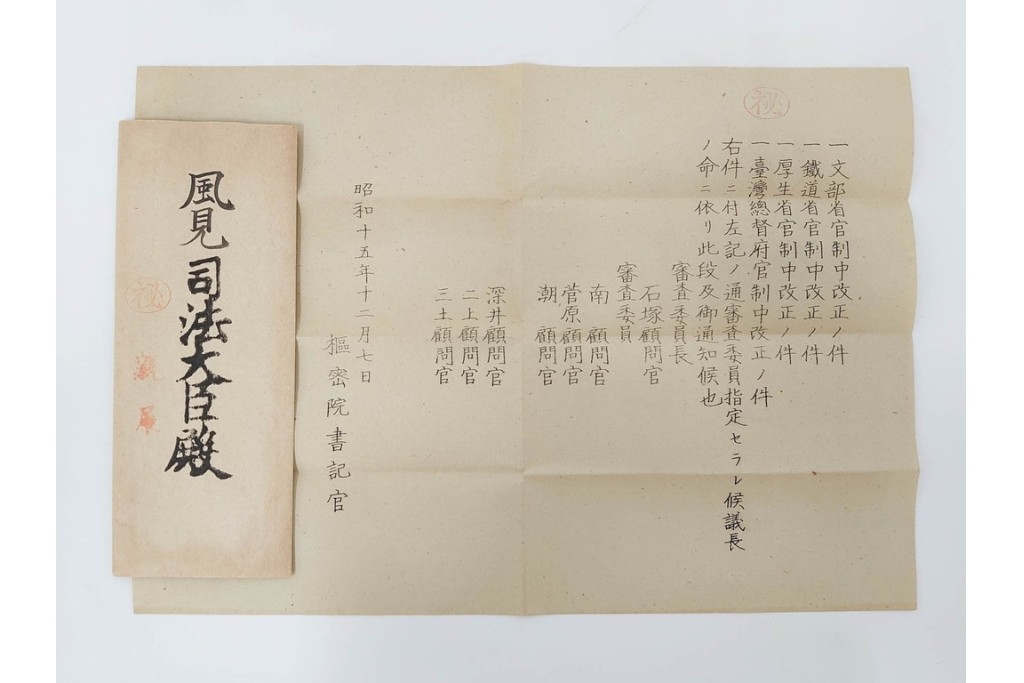 ㊙
一文部省官制中改正ノ件
一鐵道省官制中改正ノ件
一厚生省官制中改正ノ件
一臺灣總督府官制中改正ノ件
右件ニ付左記ノ通審査委員指定セラレ候議長
ノ命ニ依リ此段及御通知候也
審査委員長
石塚顧問官
審査委員
南顧問官
菅原顧問官
潮顧問官
深井顧問官
二上顧問官
三土顧問官
昭和十五年十二月七日
樞密院書記官
風見司法大臣殿
㊙